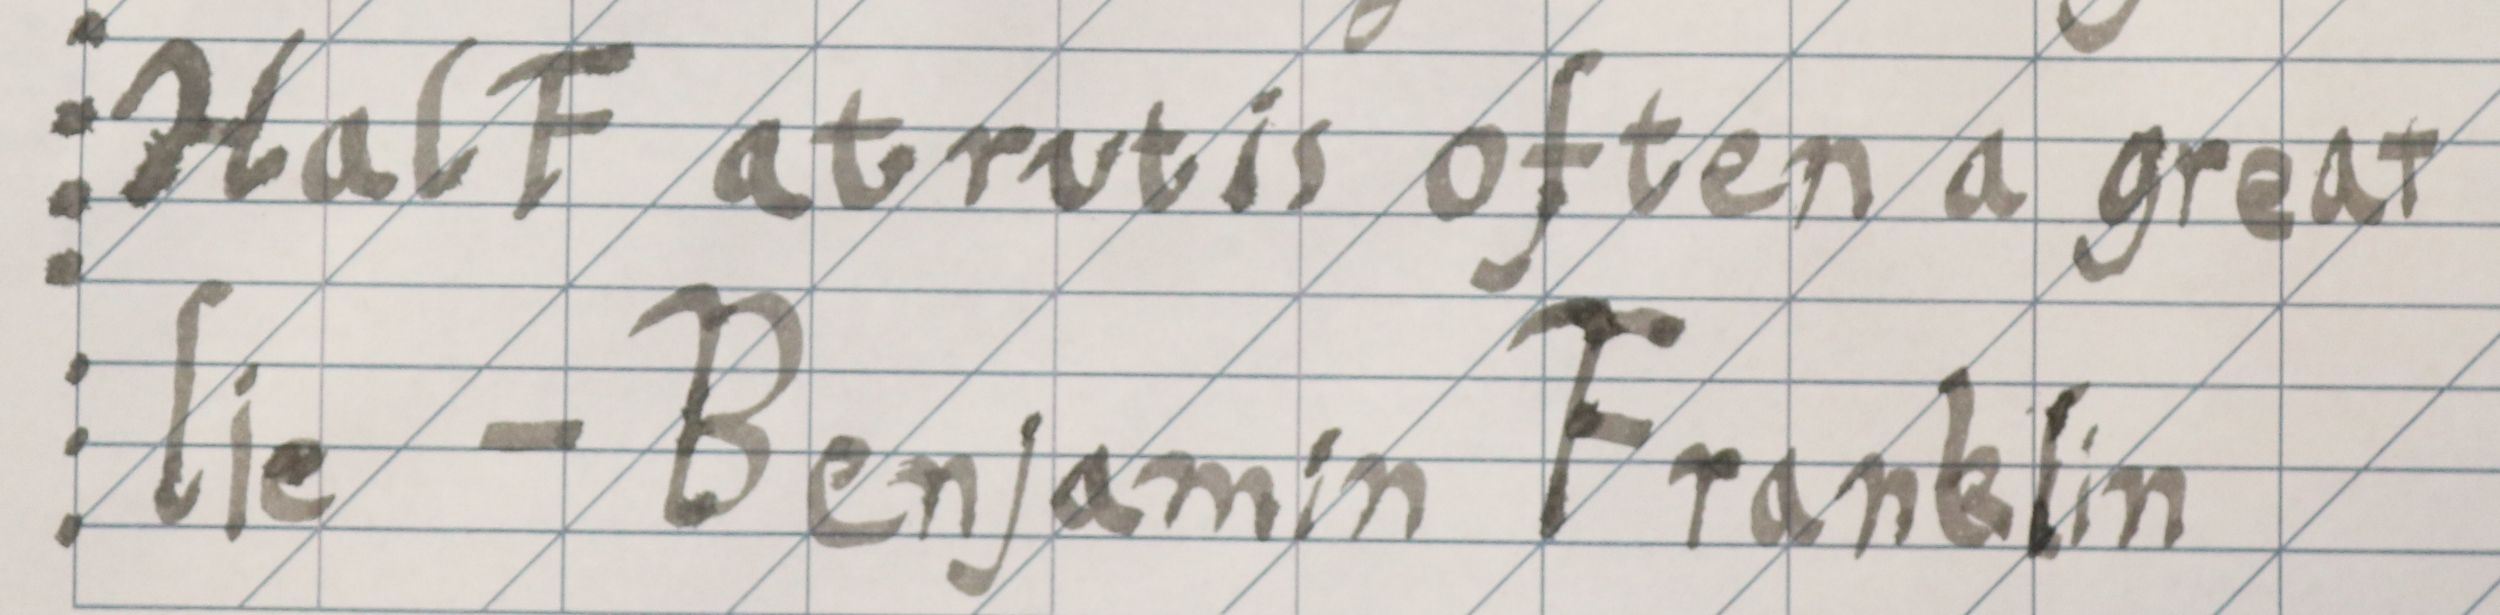 HalF atrutis often a great
lie - Benjamin Franklin